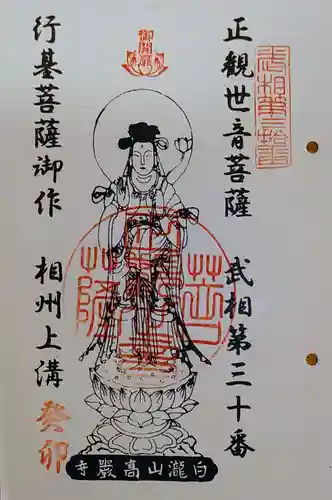 正觀世音菩薩 武相第三十番
武相第三拾番
御開扉
行基菩薩御作 相州上溝
癸卯
白瀧山高巖寺